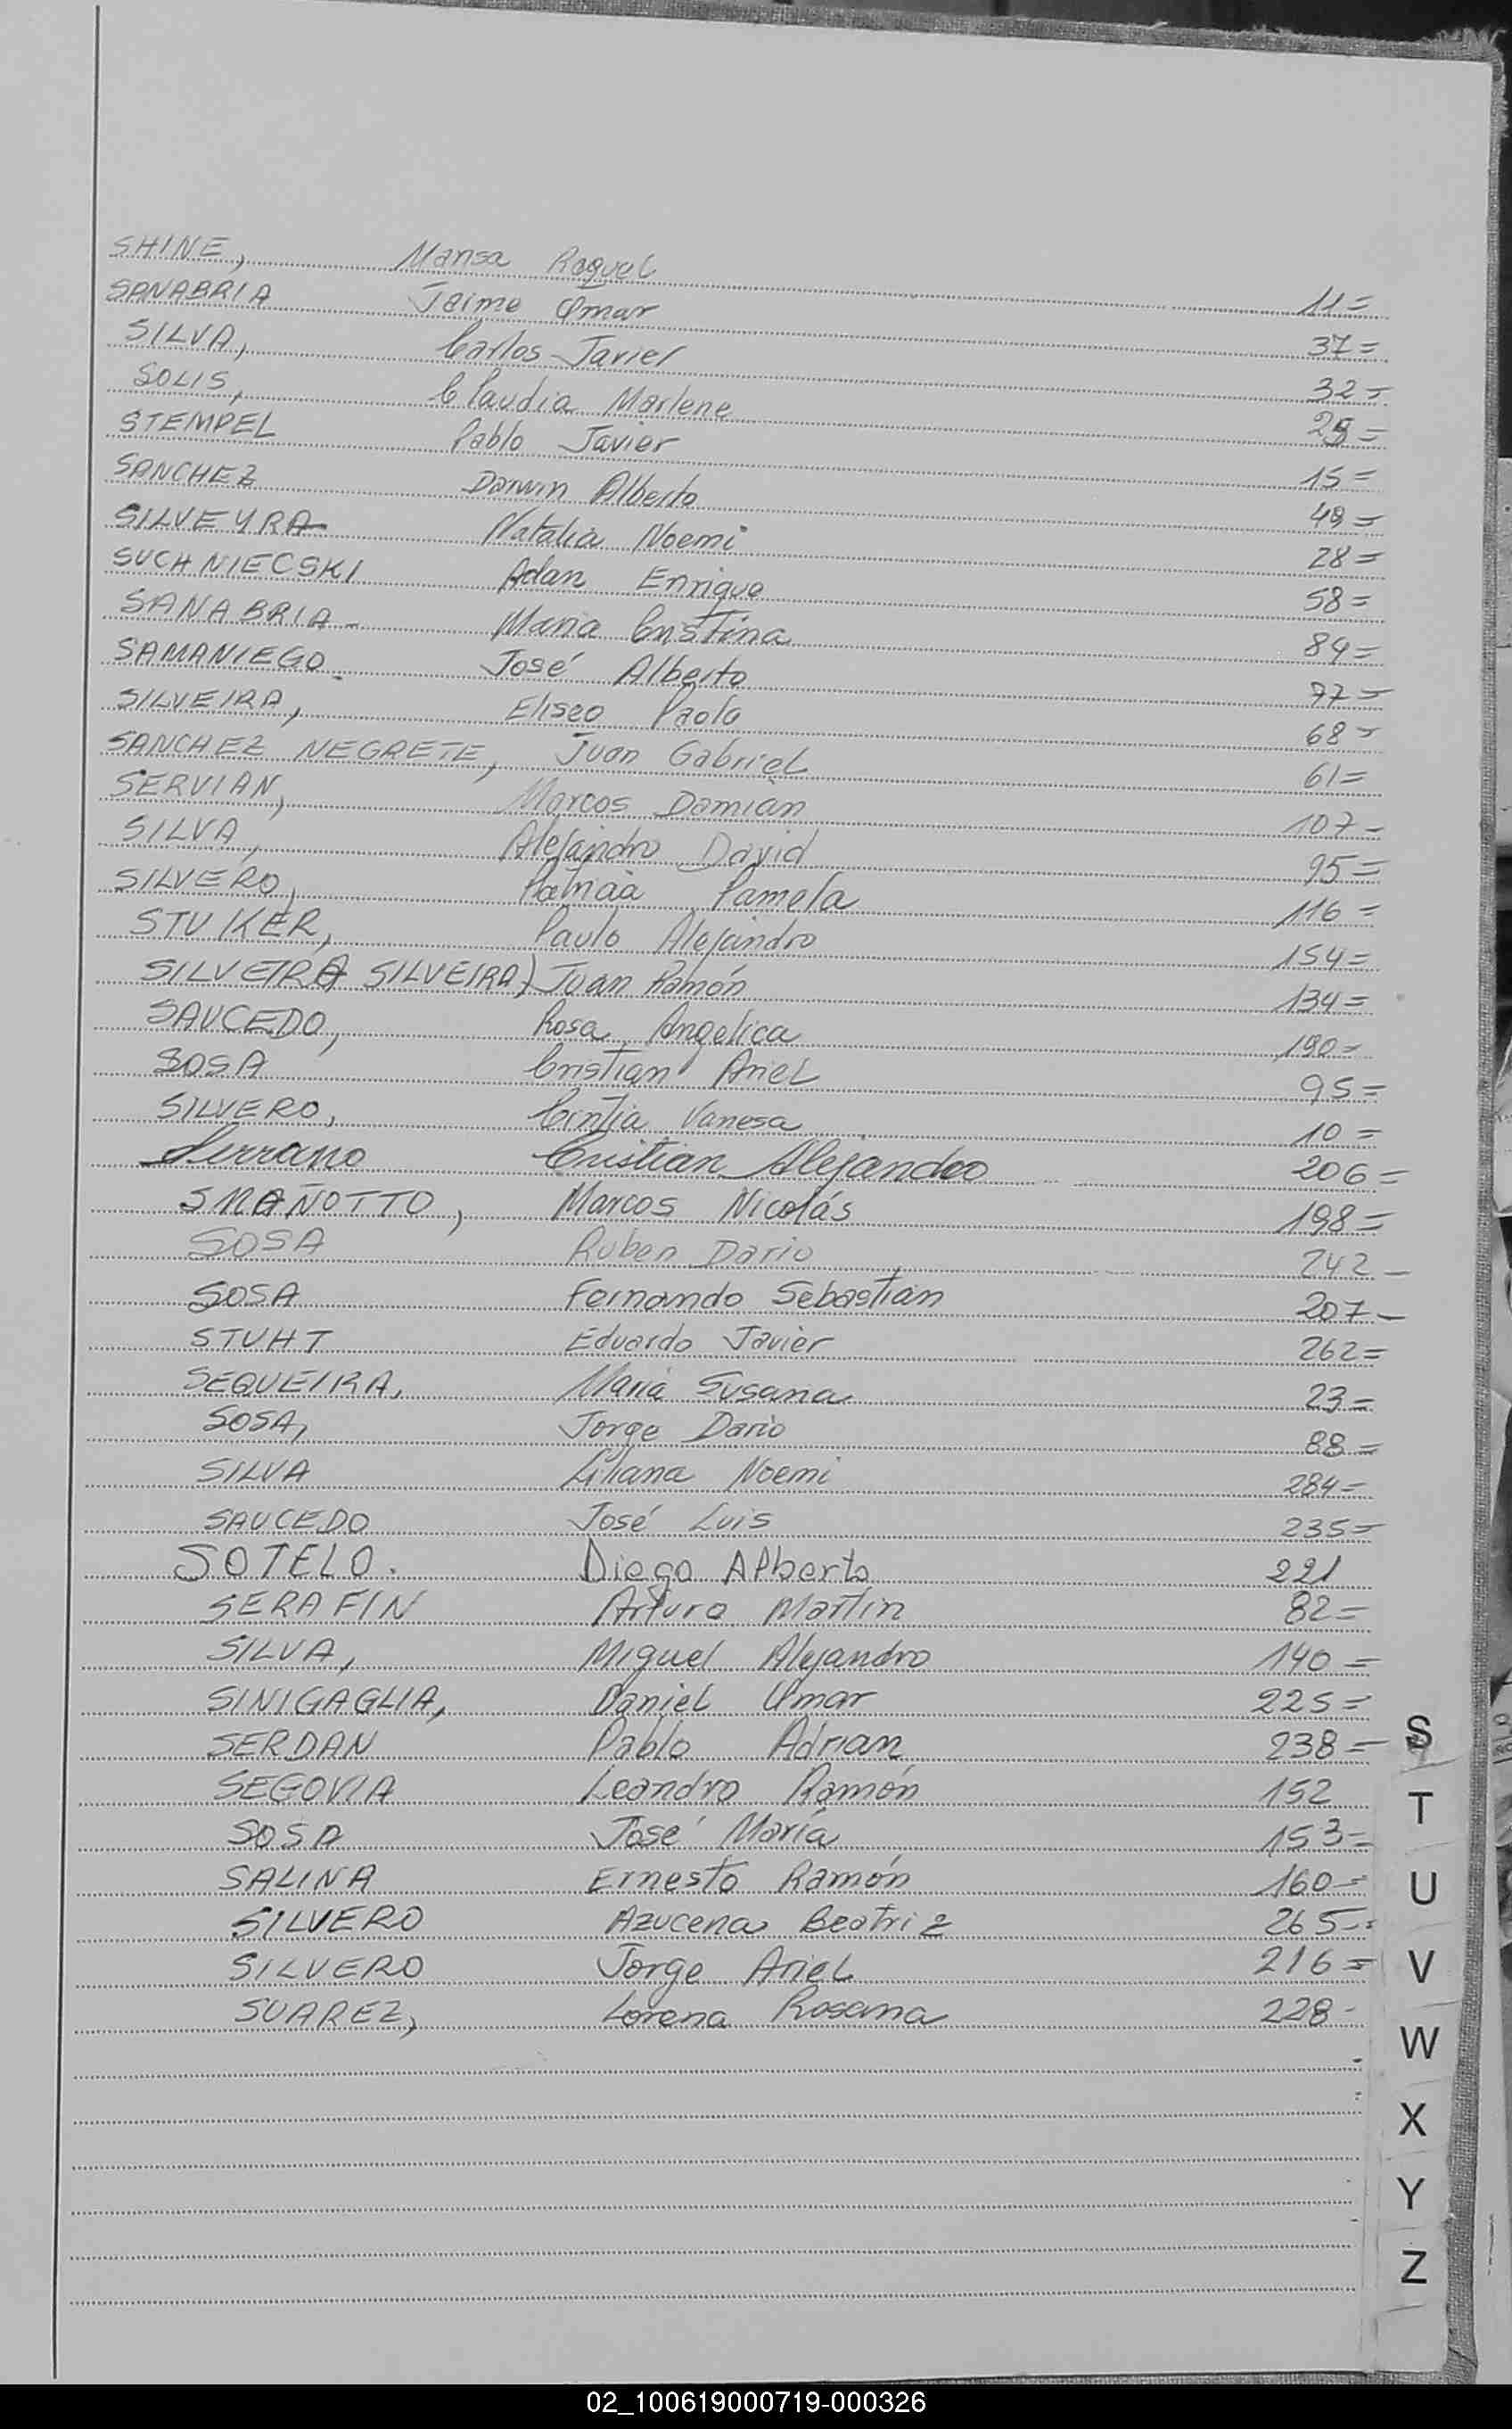 SHINE, Marisa Raquel 11=
SANABRIA Jaime Omar 37=
SILVA, Carlos Javier 32=
SOLIS, Claudia Marlene =
STEMPEL Pablo Javier 15=
SANCHEZ Darwin Alberto 49=
SILVEYRA Natalia Noemi 28=
SUCHNIECSKI Adan Enrique 58=
SANABRIA- Maria Cristina 84=
SAMANIEGO. José Alberto 77=
SILVEIRA, Eliseo Paolo 68=
SANCHEZ NEGRETE, Juan Gabriel 61=
SERVIAN, Marcos Damián 107=
SILVA, Alejandro David 95=
SILVERO, Patricia Pamela 116=
STUIKER, Paulo Alejandro 154=
SILVEIRA SILVEIRA) Juan Ramón 134=
SAUCEDO, Rosa Angelica 190=
SOSA Cristian Ariel 95=
SILVERO, Cintia Vanesa 10=
Serrano Cristian Alejandro 206=
SMAÑOTTO, Marcos Nicolás 198=
SOSA Ruben Dario 242-
SOSA Fernando Sebastián 207-
STUHT Eduardo Javier 262=
SEQUEIRA, Maria Susana 23=
SOSA, Jorge Dario 88=
SILVA Liliana Noemi 284=
SAUCEDO José Luis 235=
SOTELO. Diego Alberto 221
SERAFIN Arturo Martin 82=
SILVA, Miguel Alejandro 140=
SINIGAGLIA, Daniel Omar 225=
SERDAN Pablo Adrian 238=
SEGOVIA Leandro Ramón 152
SOSA José María 153=
SALINA Ernesto Ramón 160=
SILVERO Azucena Beatriz 265=
SILVERO Jorge Ariel 216=
SUAREZ, Lorena Rosana 228-
S
T
U
V
W
X
Y
Z
02_100619000719-000326